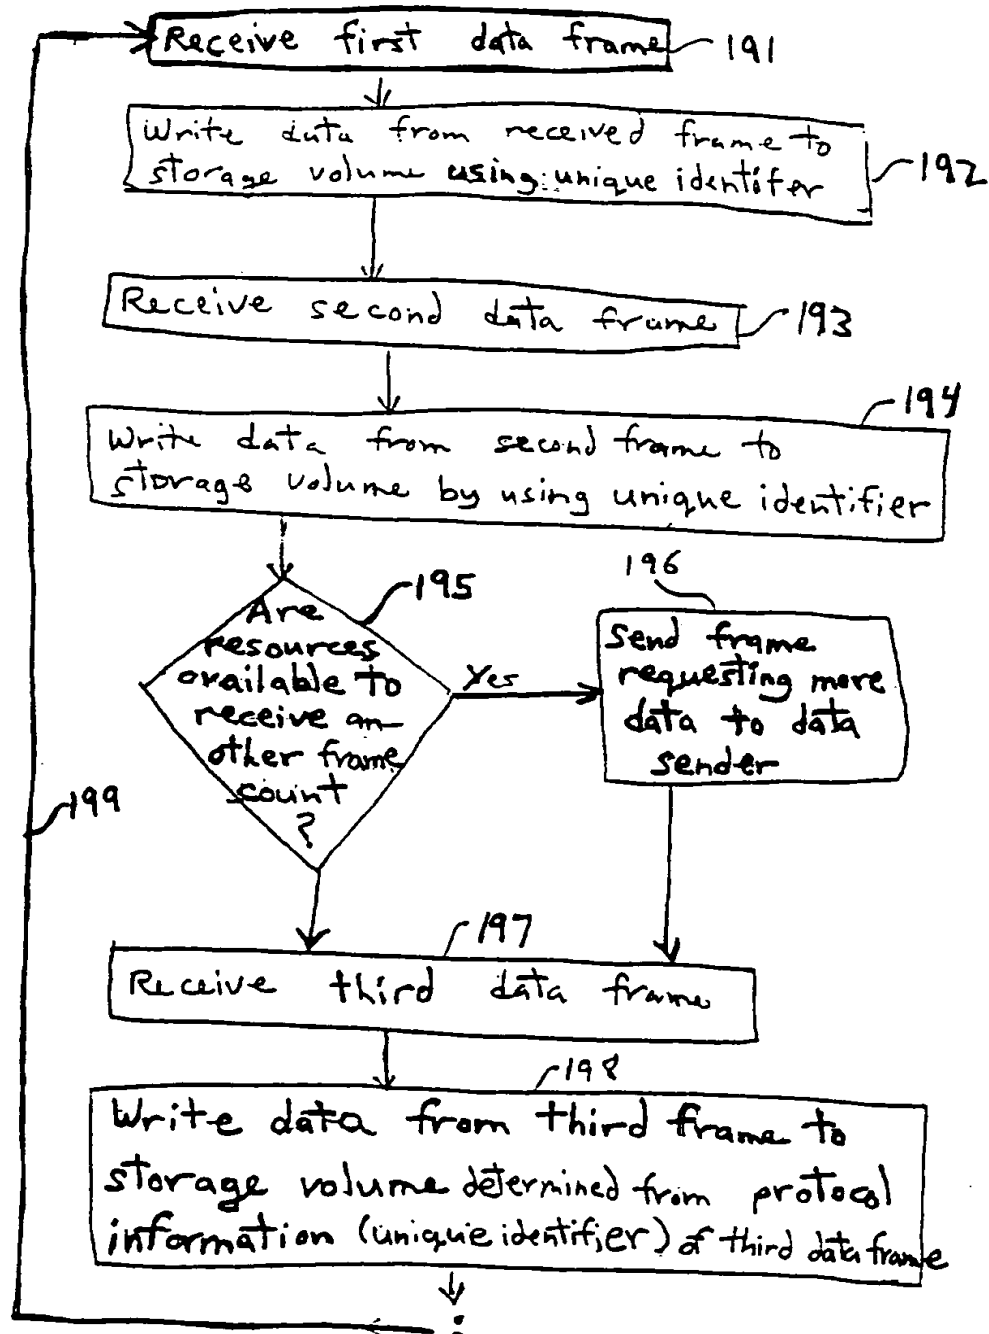 Receive first data frame
191
Write data from received frame to
storage volume using unique identifer
192
Receive second data frame
193
194
Write data from second frame to
storage volume by using unique identifier
195
Are
resources
available to
receive an-
other frame
count
?
Yes
196
Send frame
requesting more
data to data
sender
199
197
Receive third data frame
198
Write data from third frame to
storage volume determined from protocol
information (unique identifier) of third data frame